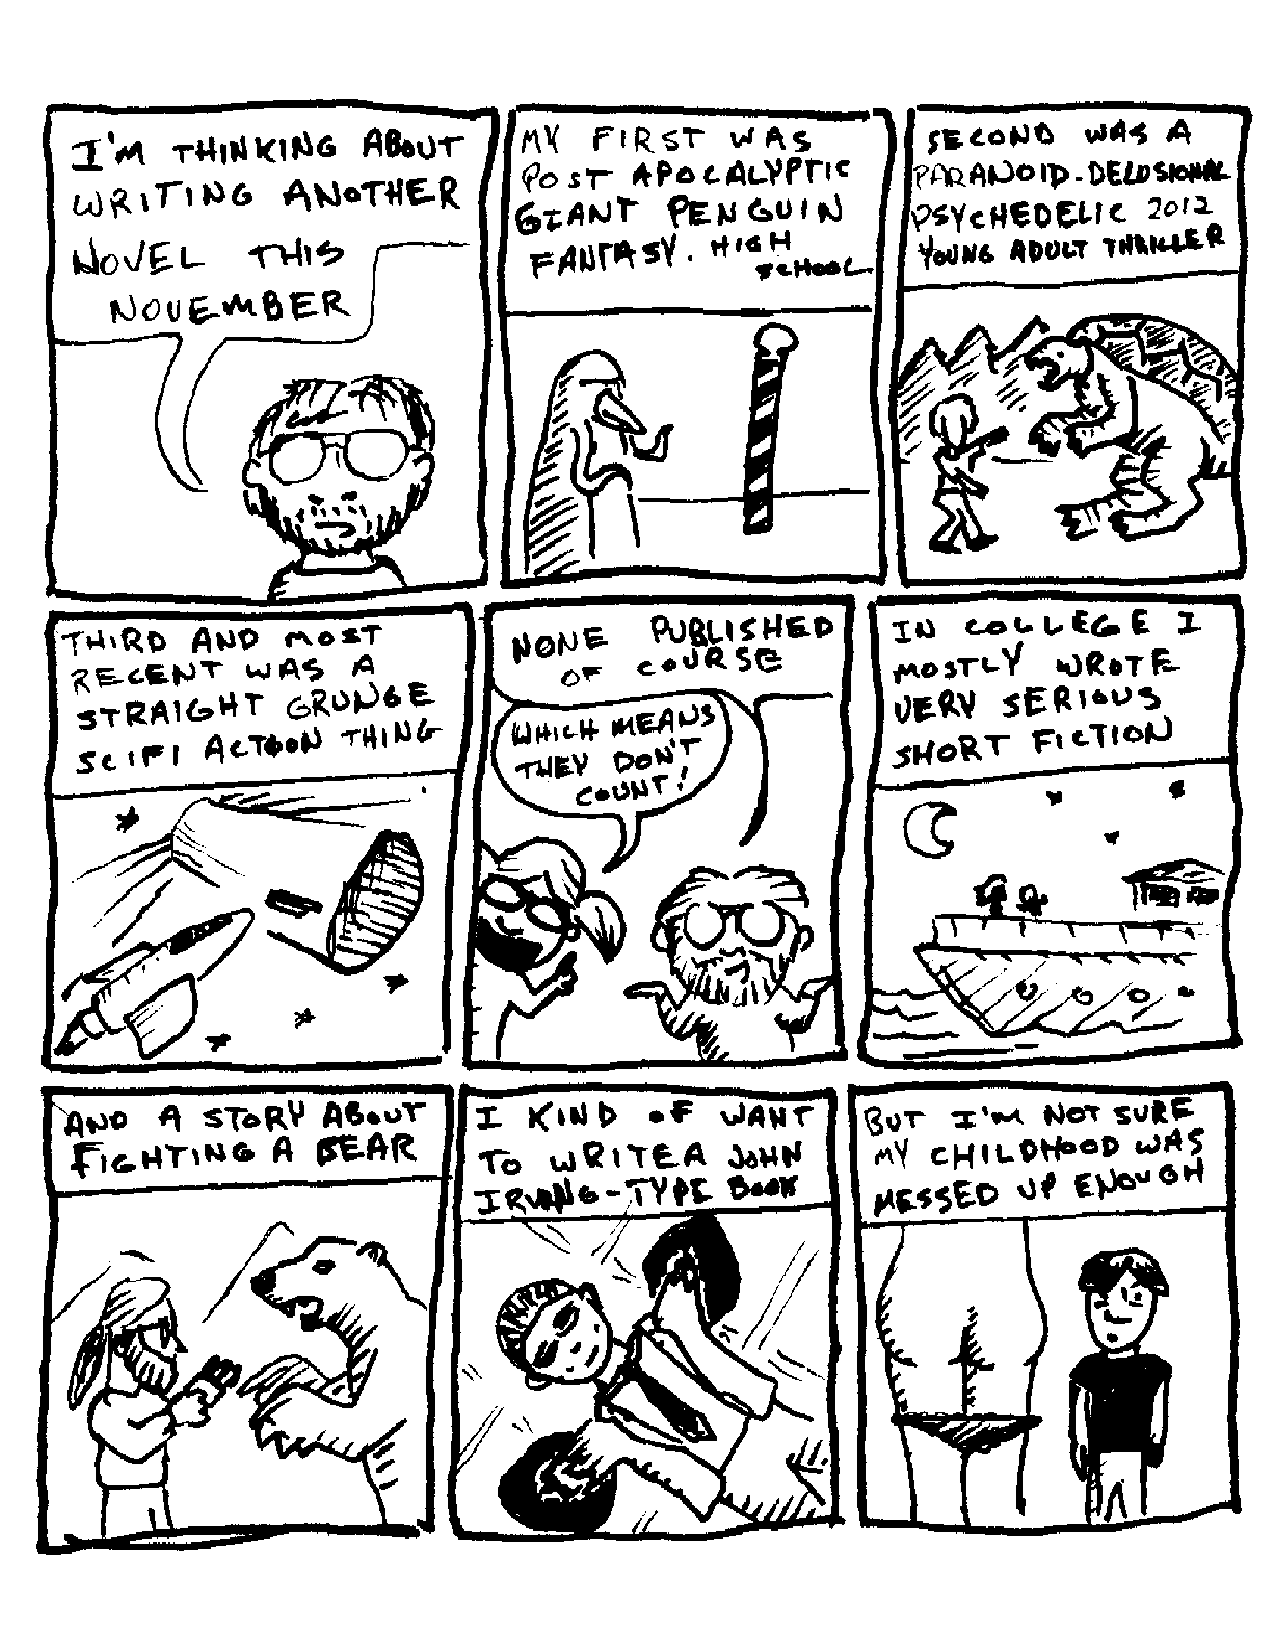 I'M THINKING ABOUT
WRITING ANOTHER
NOVEL THIS
NOVEMBER
MY FIRST WAS
POST APOCALYPTIC
GIANT PENGUIN
FANTASY. HIGH
SCHOOL
SECOND WAS A
PARANOID-DELUSIONAL
PSYCHEDELIC 2012
YOUNG ADULT THRILLER
THIRD AND MOST
RECENT WAS A
STRAIGHT GRUNGE
SCIFI ACTION THING
NONE PUBLISHED
OF COURSE
WHICH MEANS
THEY DON'T
COUNT!
IN COLLEGE I
MOSTLY WROTE
VERY SERIOUS
SHORT FICTION
AND A STORY ABOUT
FIGHTING A BEAR
I KIND OF WANT
TO WRITE A JOHN
IRVING-TYPE BOOK
BUT I'M NOT SURE
MY CHILDHOOD WAS
MESSED UP ENOUGH